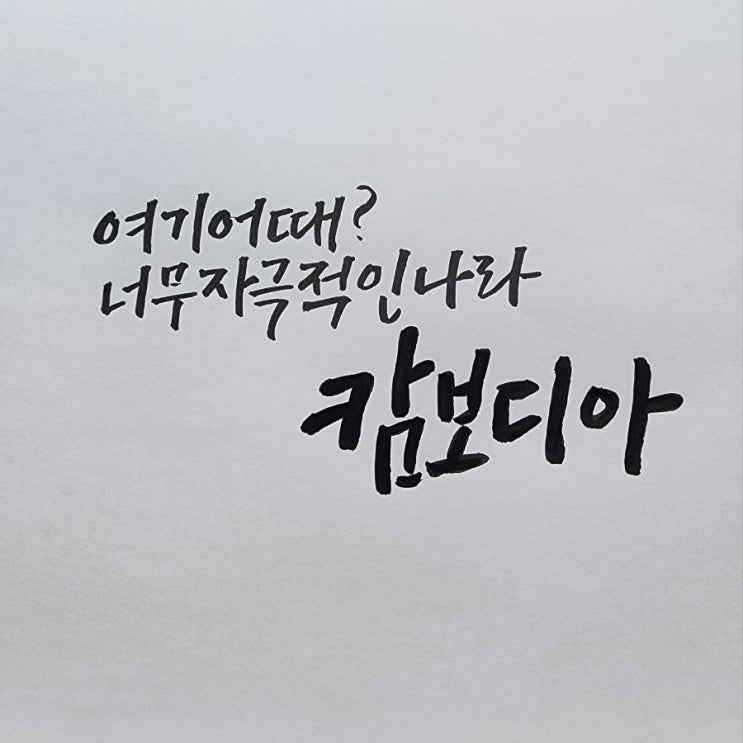 여기어때?
너무자극적인나라
캄보디아